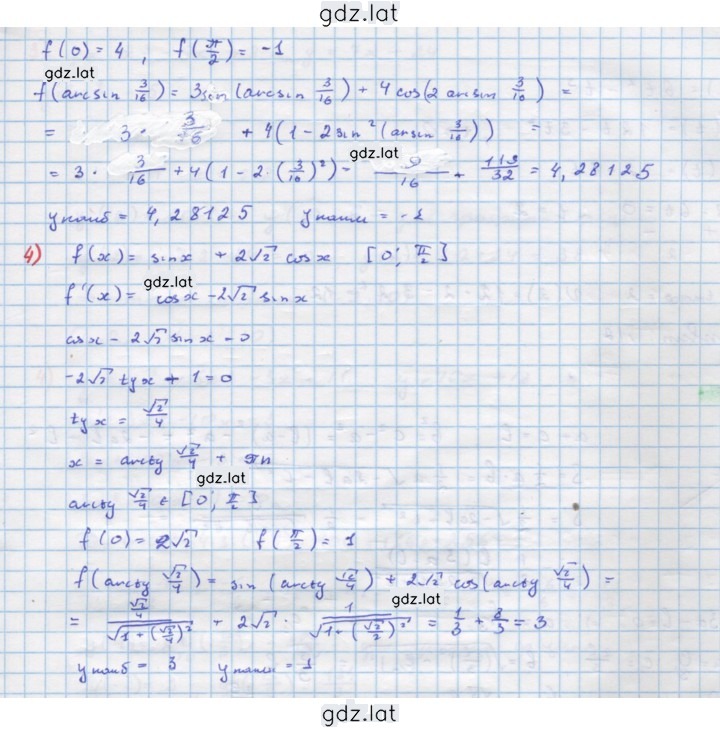 gdz.lat
f(0) = 4 , f(π/2) = -1
gdz.lat
f(arcsin 3/16) = 3sin(arcsin 3/16) + 4cos(2 arcsin 3/16) =
= 3 · 3/16 + 4(1 - 2sin²(arsin 3/16)) =
gdz.lat
= 3 · 3/16 + 4(1 - 2·(3/16)²) - 9/16 + 119/32 = 4,28125
yнаиб = 4,28125 yнаим = -1
4) f(x) = sinx + 2√2 cosx [0; π/2]
gdz.lat
f'(x) = cosx - 2√2 sinx
cosx - 2√2 sinx = 0
-2√2 tgx + 1 = 0
tgx = √2/4
x = arctg √2/4 + πn
gdz.lat
arctg √2/4 ∈ [0; π/2]
f(0) = 2√2 f(π/2) = 1
f(arctg √2/4) = sin(arctg √2/4) + 2√2 cos(arctg √2/4) =
gdz.lat
= (√2/4)/√(1 + (√2/4)²) + 2√2 · 1/√(1 + (√2/2)²) = 1/3 + 8/3 = 3
yнаиб = 3 yнаим = 1
gdz.lat